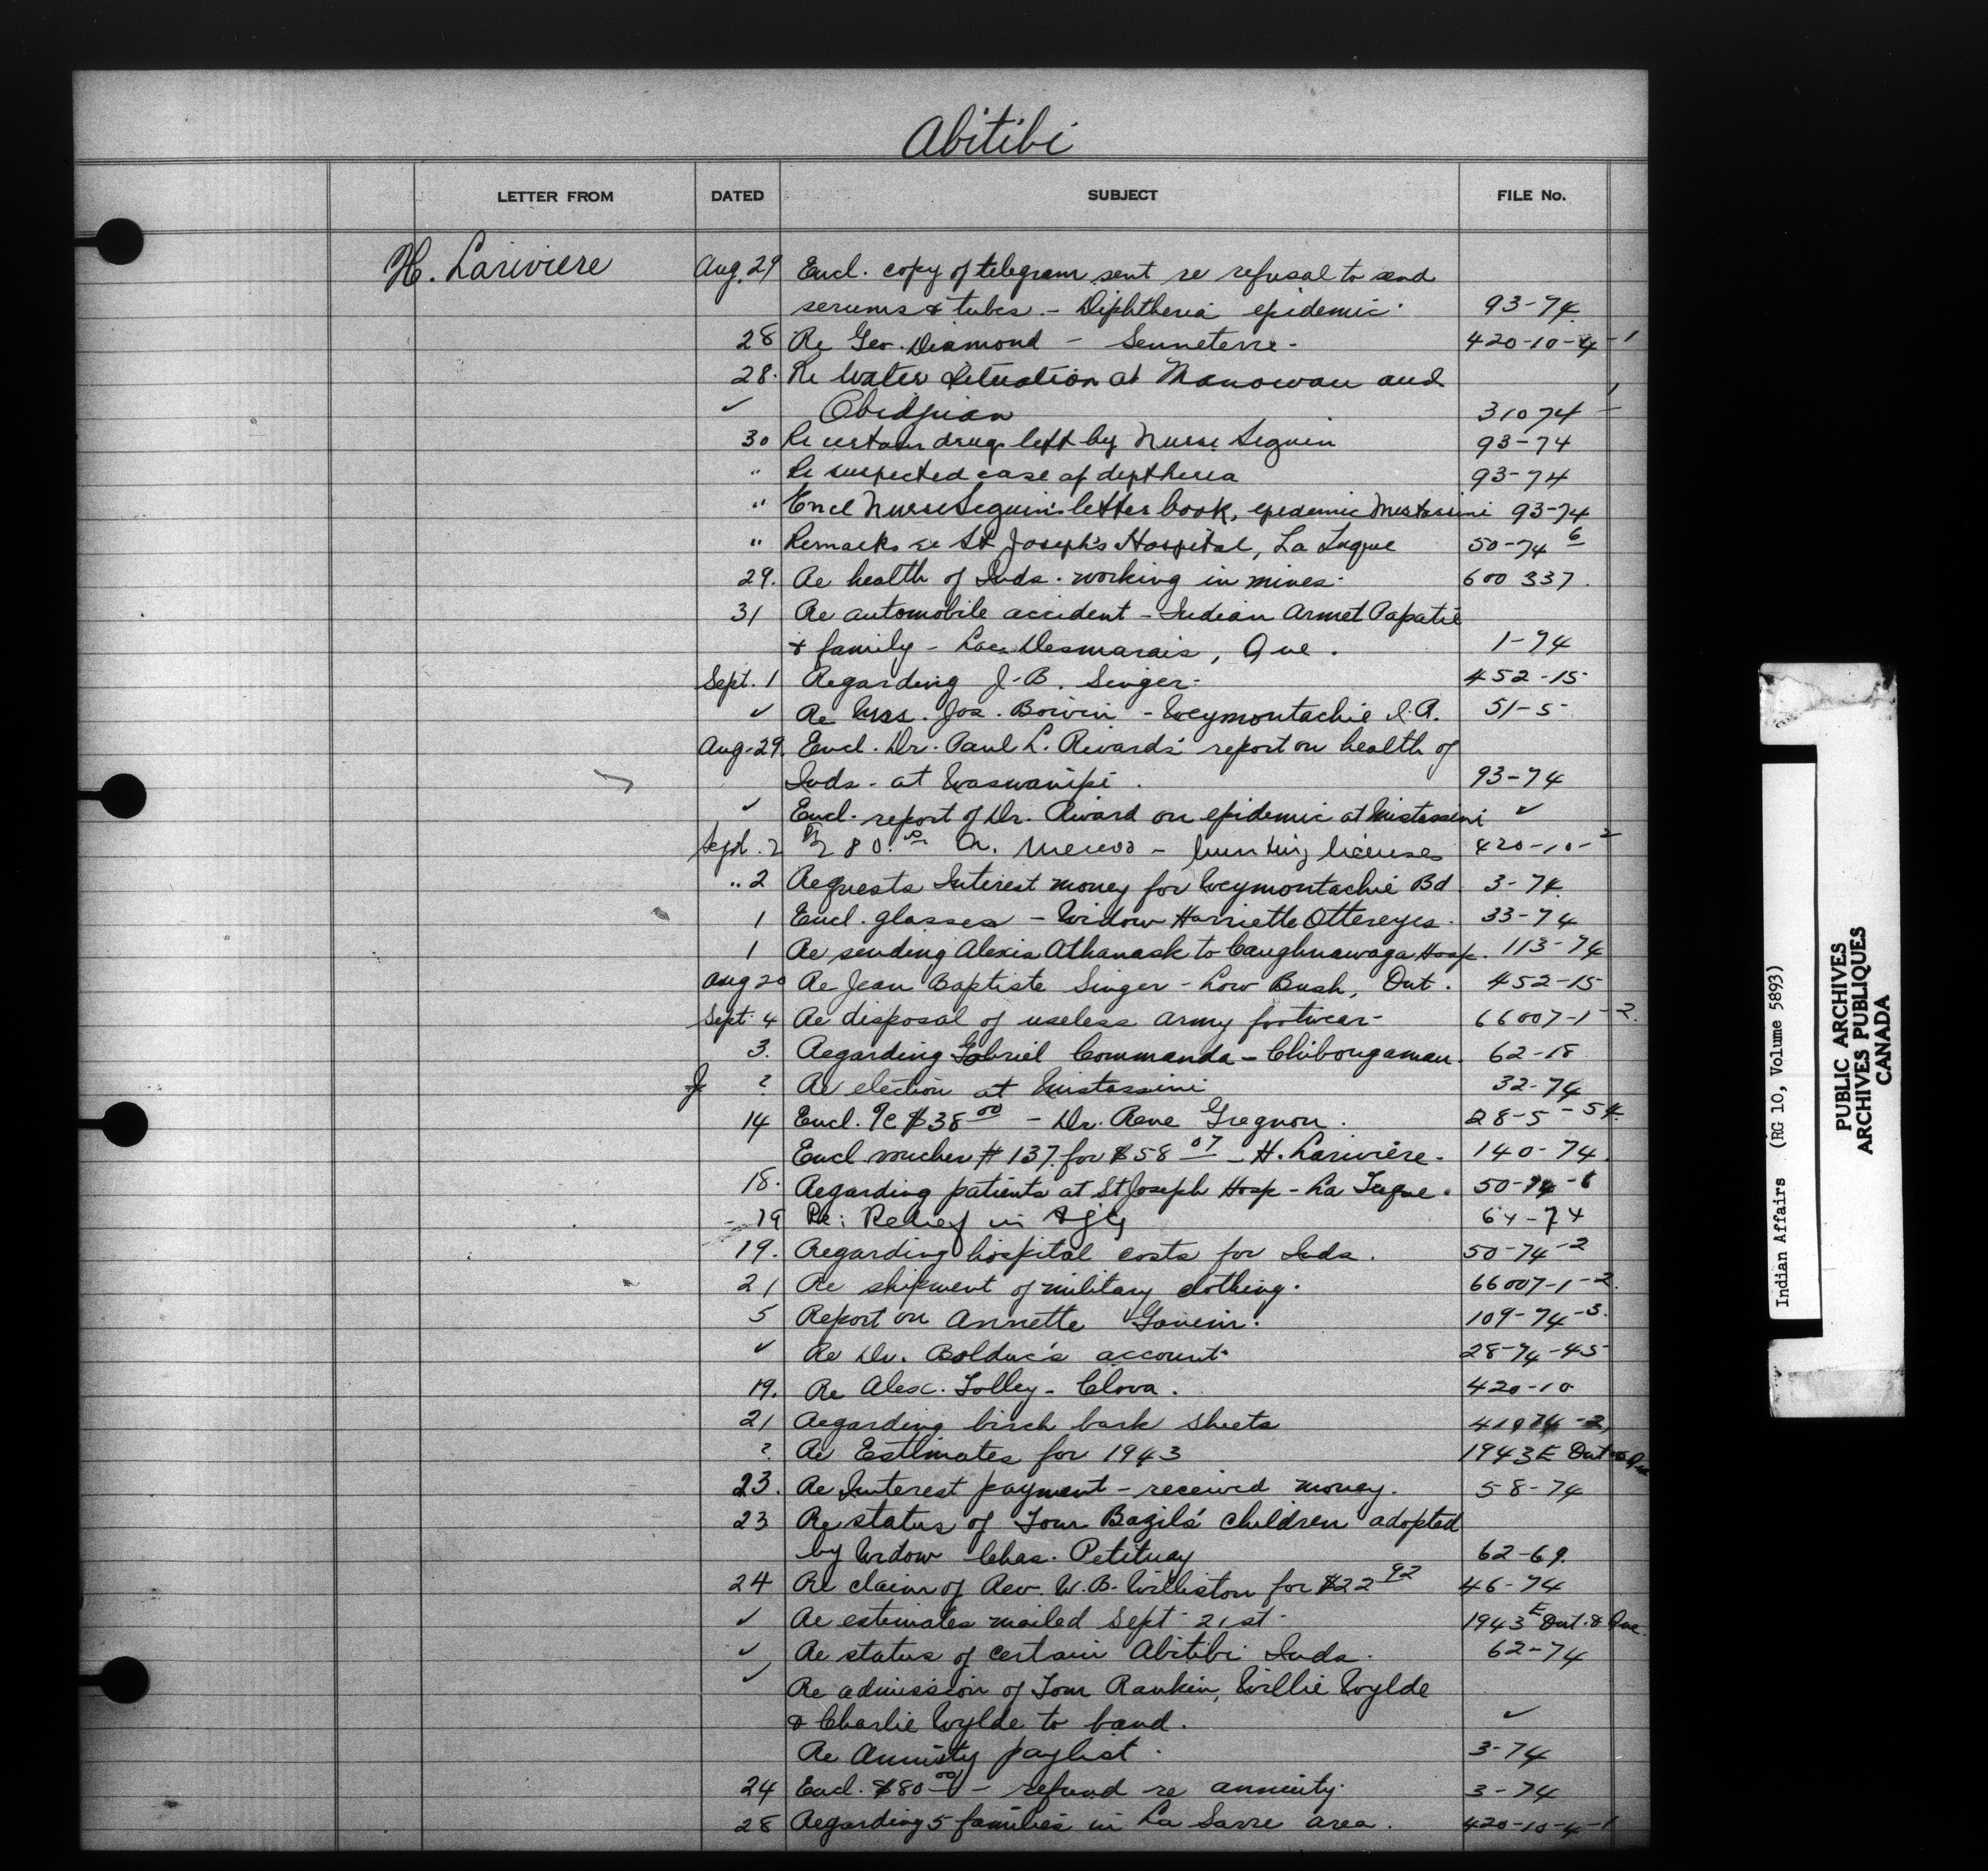 Abitibi
LETTER FROM DATED SUBJECT FILE No.
H. Lariviere Aug. 29 Encl. copy of telegram sent re refusal to send
serums & tubes - Diphtheria epidemic. 93-74
28 Re Geo. Diamond - Senneterre. 420-10-4-1
28. Re Water Situation at Manowan and
✓ Obidjuan 31074-1
30 Re certain drugs left by Nurse Seguin 93-74
" Re suspected case of deptheria 93-74
" Encl Nurse Seguin's letter book, epidemic Mistassini 93-74
" Remarks re St Joseph's Hospital, La Tuque 50-74-6
29. Re health of Inds. working in mines. 600 337.
31 Re automobile accident - Indian Armet Papatie
& family - Lac Desmarais, Que. 1-74
Sept. 1 Regarding J-B. Singer. 452-15
✓ Re Mrs. Jos. Boivin - Weymontachie I.R. 51-5
Aug. 29. Encl. Dr. Paul L. Rivard's report on health of
Inds - at Waswanipi. 93-74
✓ Encl. report of Dr. Rivard on epidemic at Mistassini ✓
Sept. 2 80. hunting licenses 420-10-2
" 2 Requests Interest money for Weymontachie Bd. 3-74
1 Encl. glasses - Widow Harriette Ottereyes. 33-74
1 Re sending Alexis Athanask to Caughnawaga Hosp. 113-74
Aug 20 Re Jean Baptiste Singer - Low Bush, Ont. 452-15
Sept. 4 Re disposal of useless army footwear- 66007-1-2.
3. Regarding Gabriel Commanda - Chibougamau. 62-18
? Re election at Mistassini 32-74
14 Encl. $38 00 - Dr. Rene Gregnon. 28-5-54.
Encl voucher # 137 for $58 07 - H. Lariviere. 140-74.
18. Regarding patients at St Joseph Hosp - La Tuque. 50-74-6
19 Re: Relief in 64-74
19. Regarding hospital costs for Inds. 50-74-2
21 Re shipment of military clothing. 66007-1-2.
5 Report on Annette 109-74-3.
✓ Re Dr. Bolduc's account. 28-74-45
19. Re Alex. Tolley - Clova. 420-10
21 Regarding birch bark sheets
? Re Estimates for 1943 1943 E Ont & Que
23. Re Interest payment - received money. 58-74
23 Re status of Tom Bazil's children adopted
by Widow Chas. Petiquay 62-69.
24 Re claim of Rev. W.B. Williston for $22 92 46-74
✓ Re estimates mailed Sept. 21st. 1943 E Ont. & Que.
✓ Re status of certain Abitibi Inds. 62-74
✓ Re admission of Tom Rankin, Willie Wylde
& Charlie Wylde to band. ✓
Re Annuity paylist. 3-74
24 Encl. $80 00 - refund re annuity. 3-74
28 Regarding 5 families in La Sarre area. 420-10-4-1
Indian Affairs (RG 10, Volume 5893)
PUBLIC ARCHIVES
ARCHIVES PUBLIQUES
CANADA